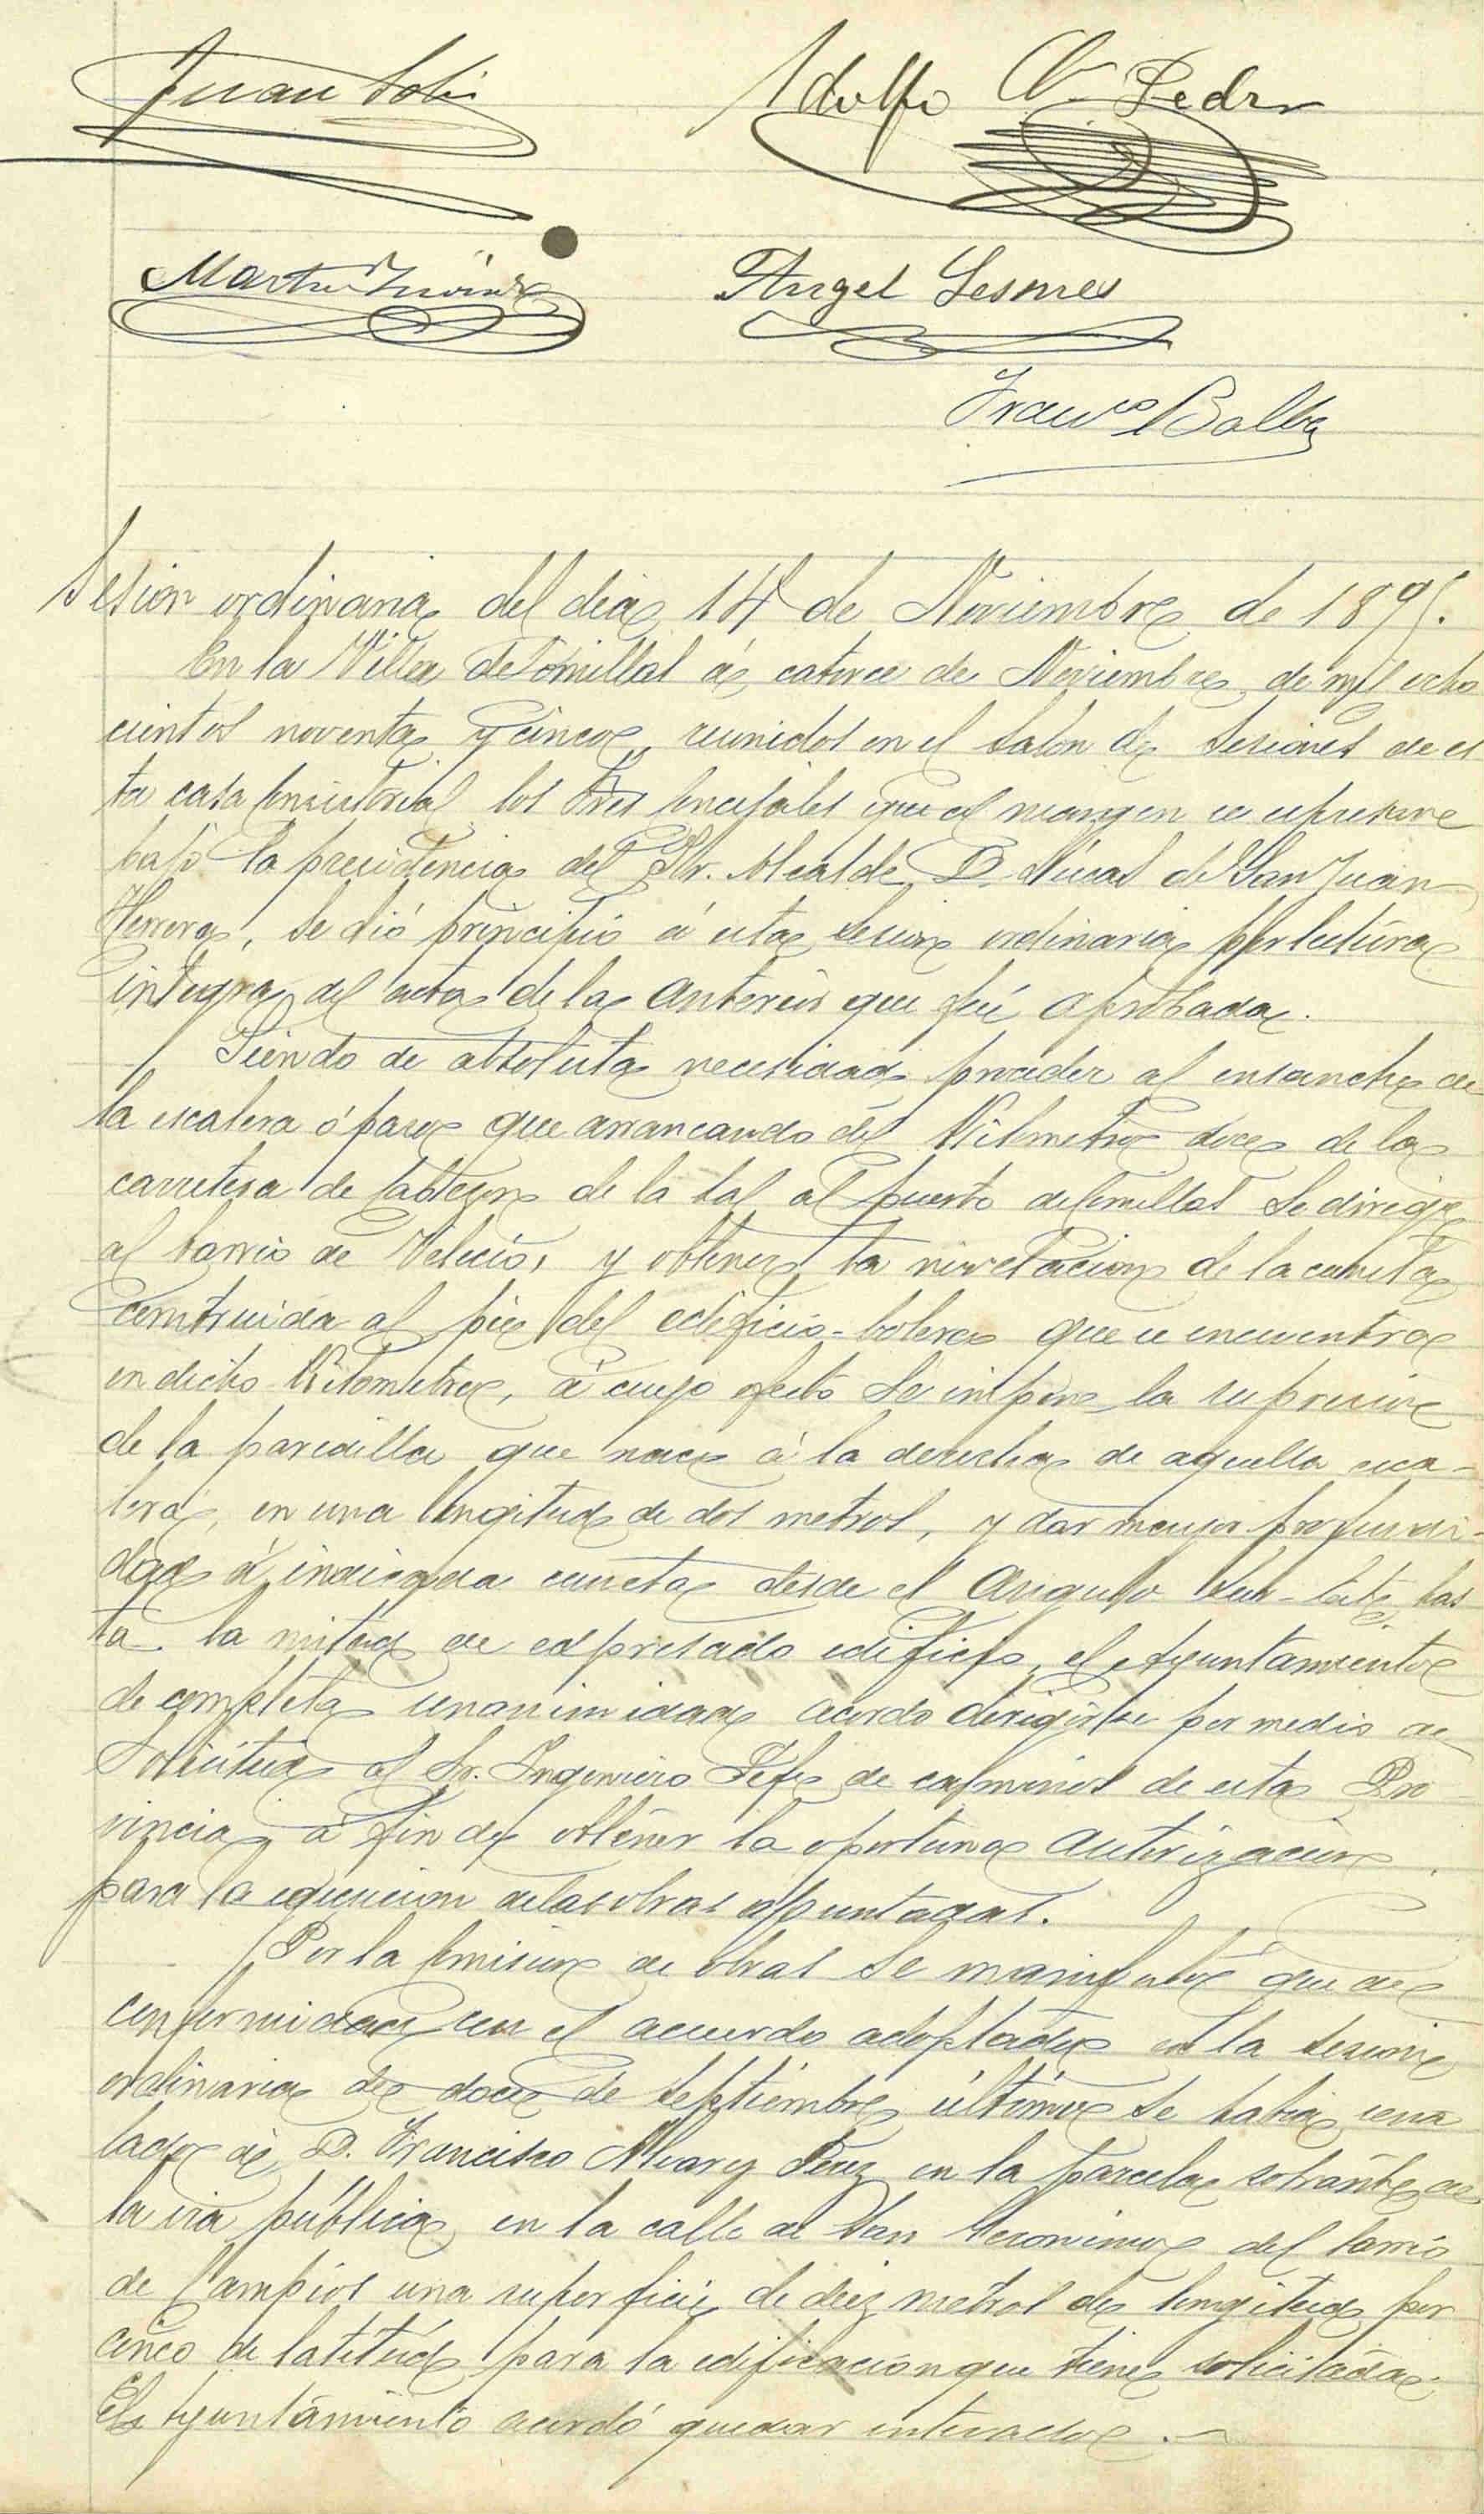 Juan Solis
Adolfo V. Pedr
Martin
Angel Lesmes
Franco Balbás
Sesion ordinaria del dia 14 de Noviembre de 1895.
En la Villa de Tomillal á catorce de Noviembre de mil ocho
cientos noventa y cinco, reunidos en el Salón de Sesiones de es
ta casa Consistorial los Sres Concejales que al margen se expresan
bajo la presidencia del Sr. Alcalde D. Lucas de San Juan
Herrera, se dió principio á esta sesion ordinaria por lectura
íntegra del acta de la anterior que fué aprobada.
Siendo de absoluta necesidad proceder al ensanche de
la escalera ó paso que arrancando del Kilometro doce de la
carretera de Cabezon de la Sal al puerto de Comillas se dirige
al barrio de Velecio, y obtener la nivelacion de la cuneta
construida al pie del edificio-bolera que se encuentra
en dicho Kilometro, á cuyo efecto se impone la supresion
de la paredilla que nace á la derecha de aquella esca-
lera, en una longitud de dos metros, y dar mayor profundi-
dad á indicada cuneta desde el angulo Sud-Este has
ta la mitad de expresado edificio, el Ayuntamiento
de completa unanimidad acordo dirigirse por medio de
solicitud al Sr. Ingeniero Jefe de caminos de esta Pro
vincia, á fin de obtener la oportuna autorizacion
para la ejecucion de las obras apuntadas.
Por la Comision de obras se manifestó que de
conformidad con el acuerdo adoptado en la sesion
ordinaria de doce de Septiembre último se habia sena
lado á D. Francisco Alvarez Perez en la parcela sobrante de
la via pública en la calle de San Geronimo del barrio
de Campios una superficie de diez metros de longitud por
cinco de latitud para la edificacion que tiene solicitada.
El Ayuntamiento acordó quedar enterado.